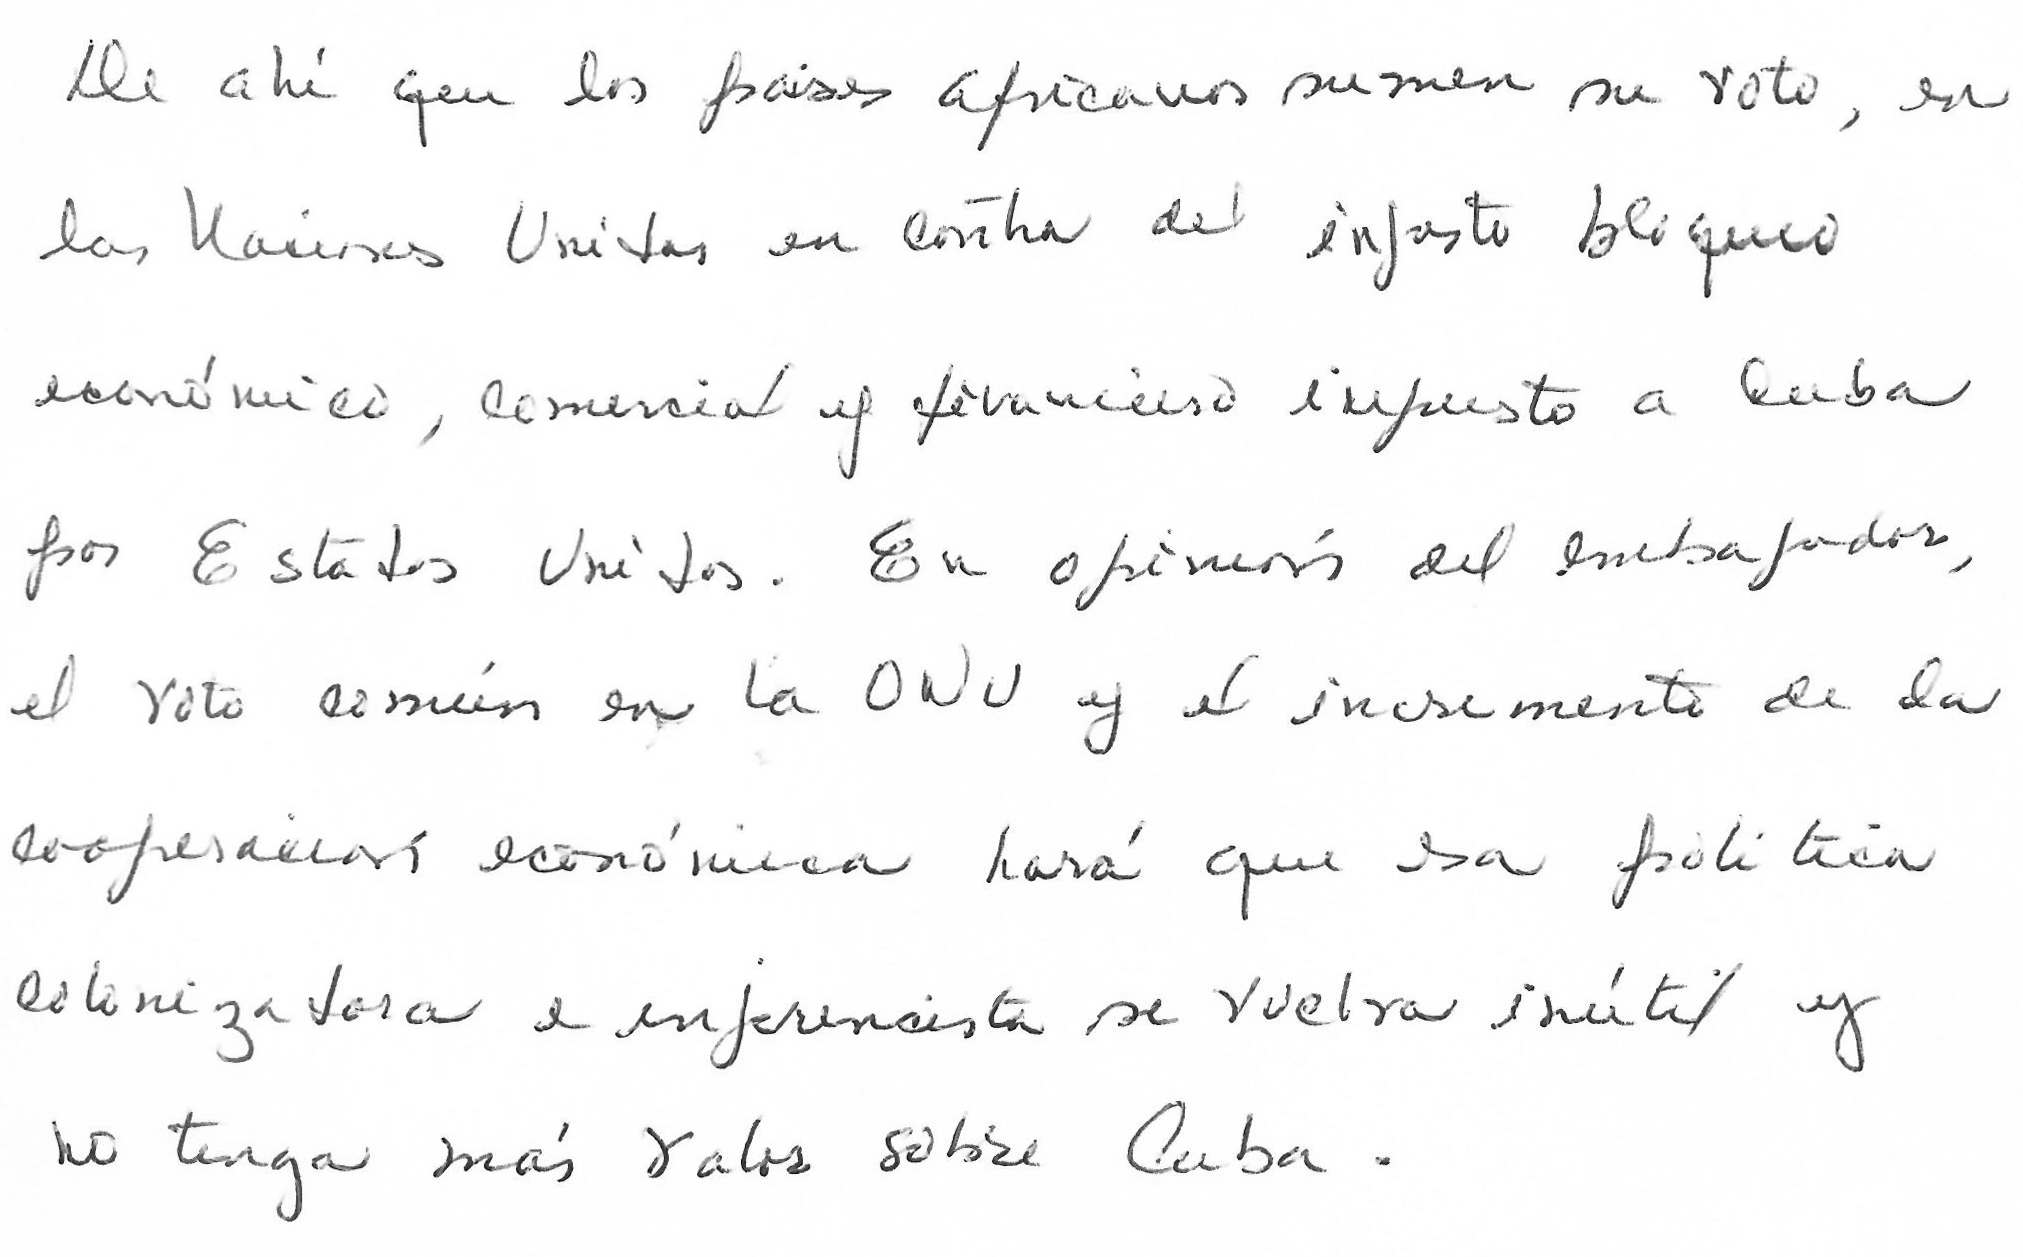 De ahí que los países africanos sumen su voto, en
las Naciones Unidas en contra del injusto bloqueo
económico, comercial y financiero impuesto a Cuba
por Estados Unidos. En opinión del embajador,
el voto común en la ONU y el incremento de la
cooperación económica hará que esa política
colonizadora e injerencista se vuelva inútil y
no tenga más valor sobre Cuba.